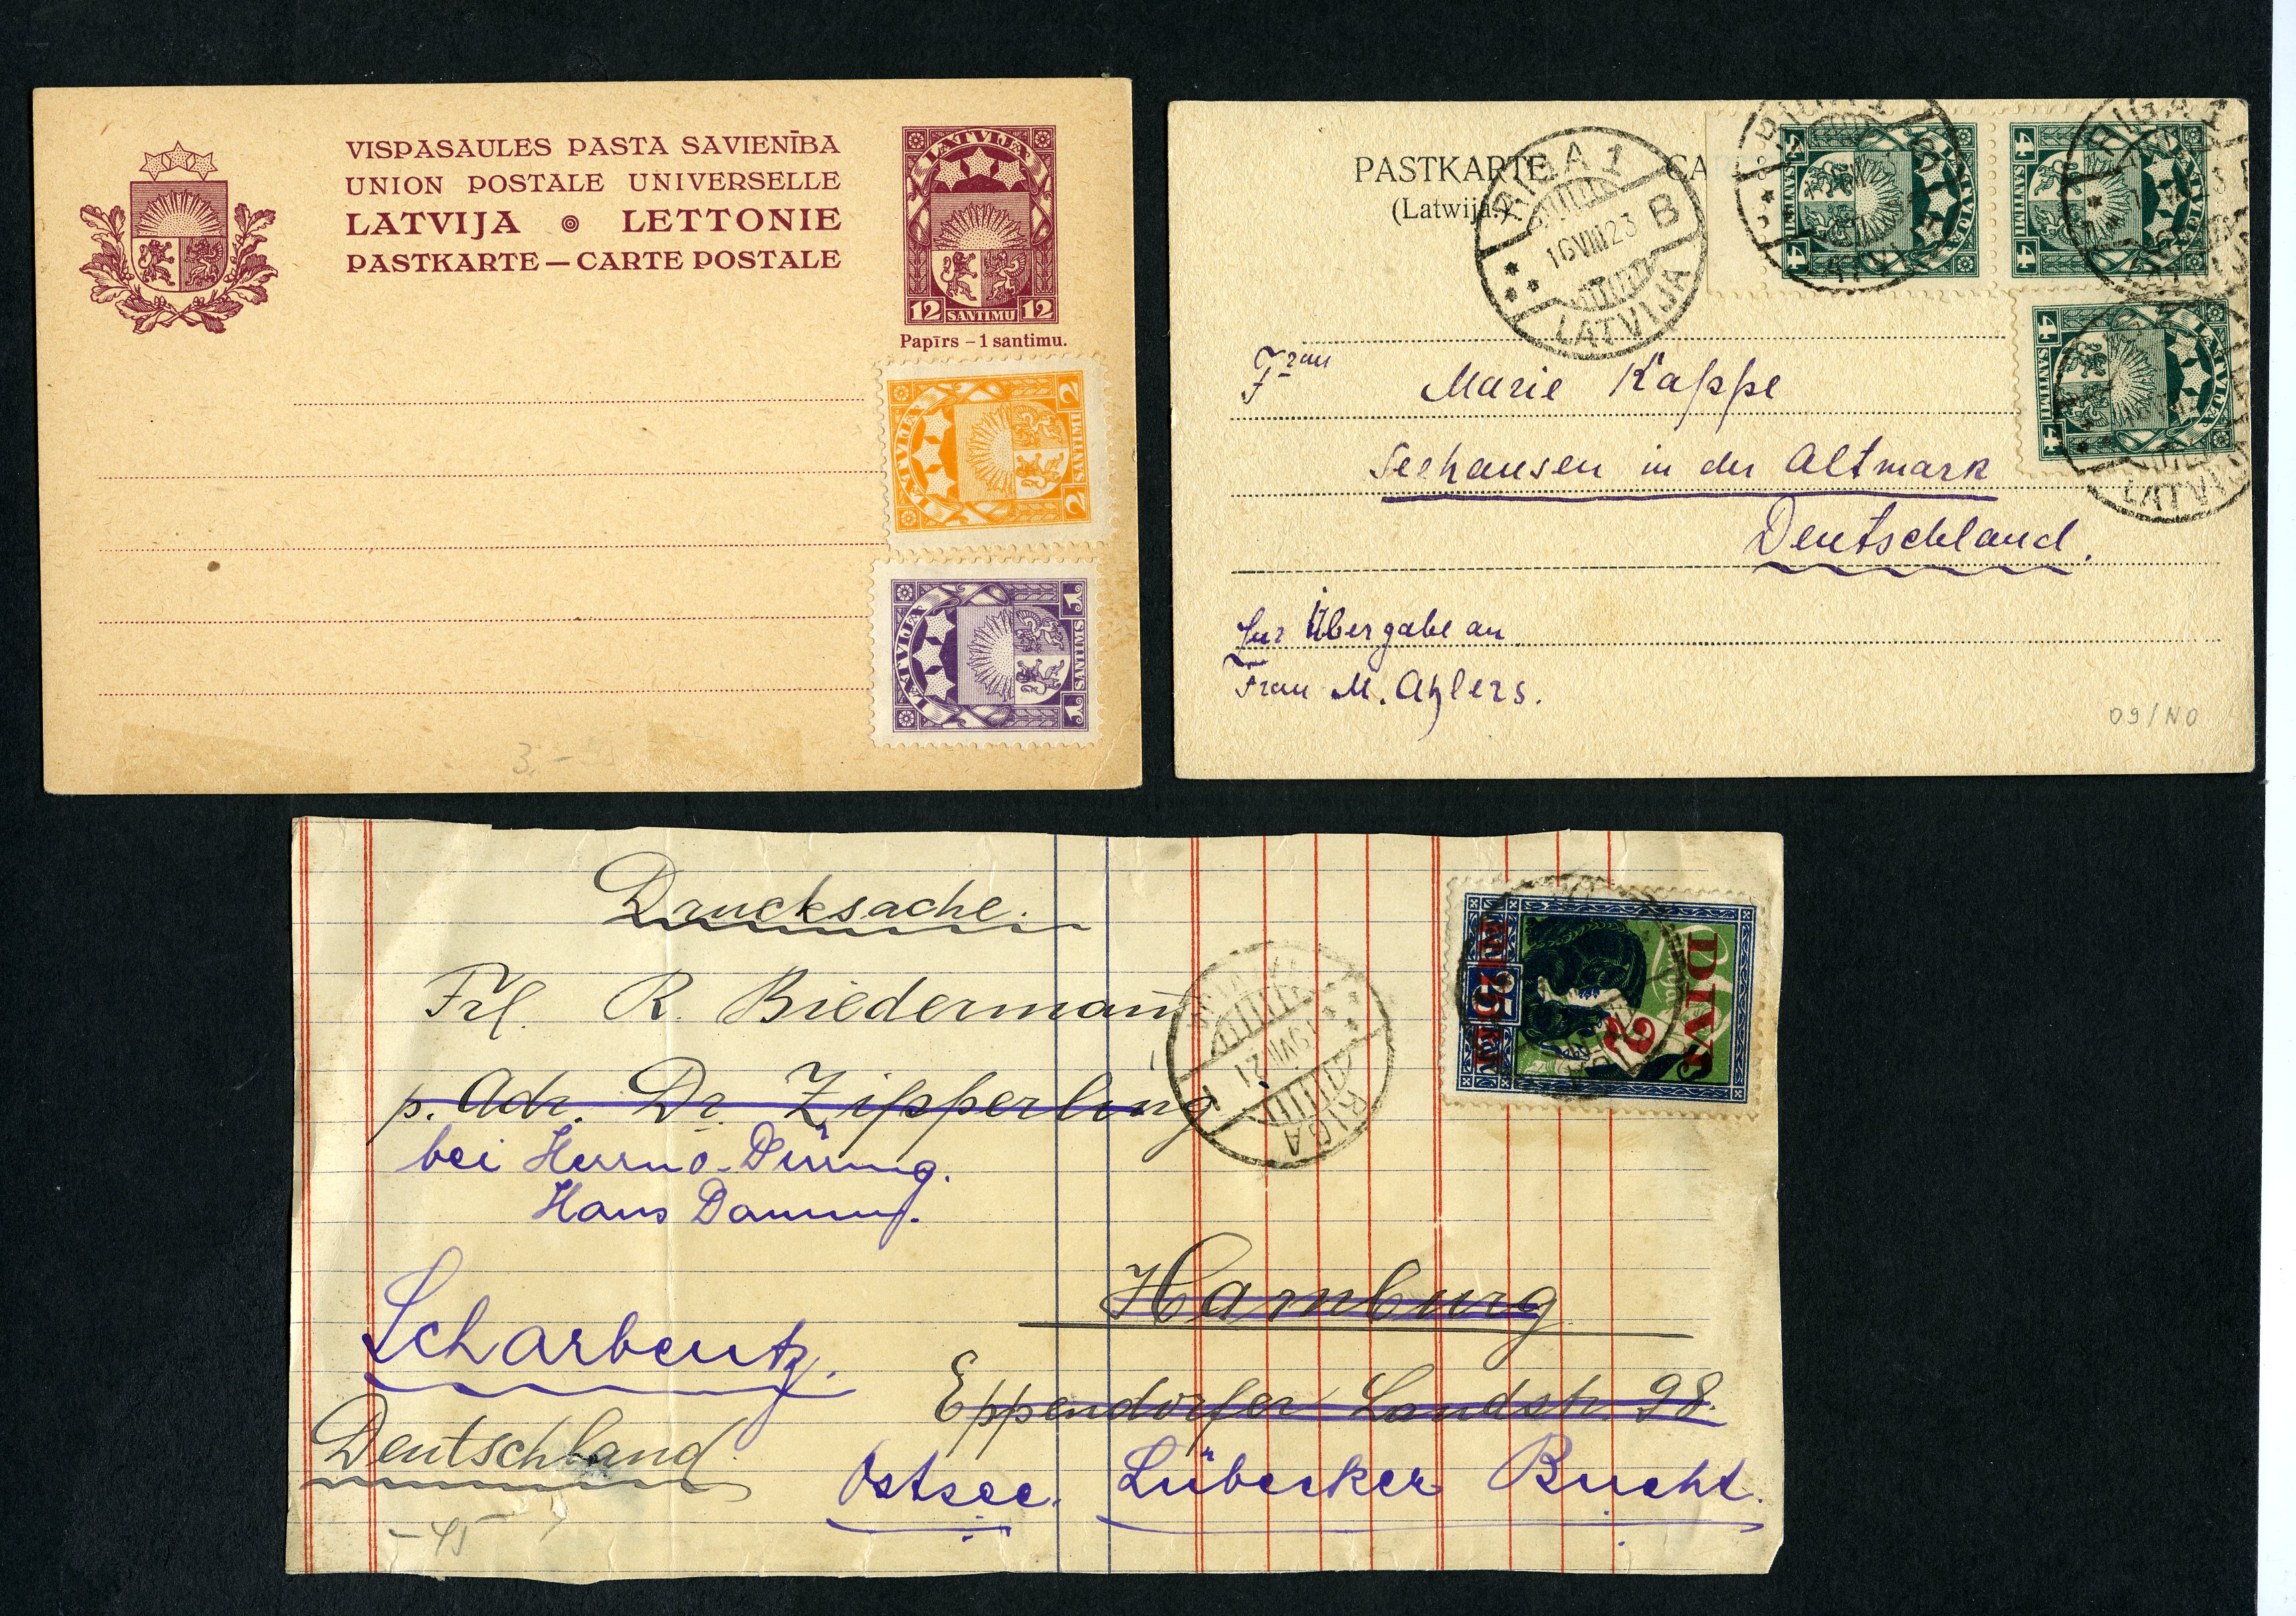 VISPASAULES PASTA SAVIENĪBA
UNION POSTALE UNIVERSELLE
LATVIJA LETTONIE
PASTKARTE — CARTE POSTALE
LATVIJA
12 SANTIMU 12
Papīrs – 1 santimu.
LATVIJA
2 SANTIMI 2
LATVIJA
1 SANTIMS 1
3.–
PASTKARTE CA
(Latwija.)
RIGA 1
B
16 VIII 23
LATVIJA
4 SANTIMI 4
LATVIJA
4 SANTIMI 4
LATVIJA
4 SANTIMI 4
LATVIJA
RIGA
LATVIJA
Frau
Marie Kappe
Seehausen in der Altmark
Deutschland.
Zur Übergabe an
Frau M. Ahlers.
09/NO
Drucksache.
Frl. R. Biedermann
p. Adr. Dr. Zipperling
bei Herrn
Hans
RIGA
DIVI
2
25
Hamburg
Scharbeutz.
Eppendorfer Landstr. 98.
Deutschland.
Ostsee. Lübecker Bucht.
–45